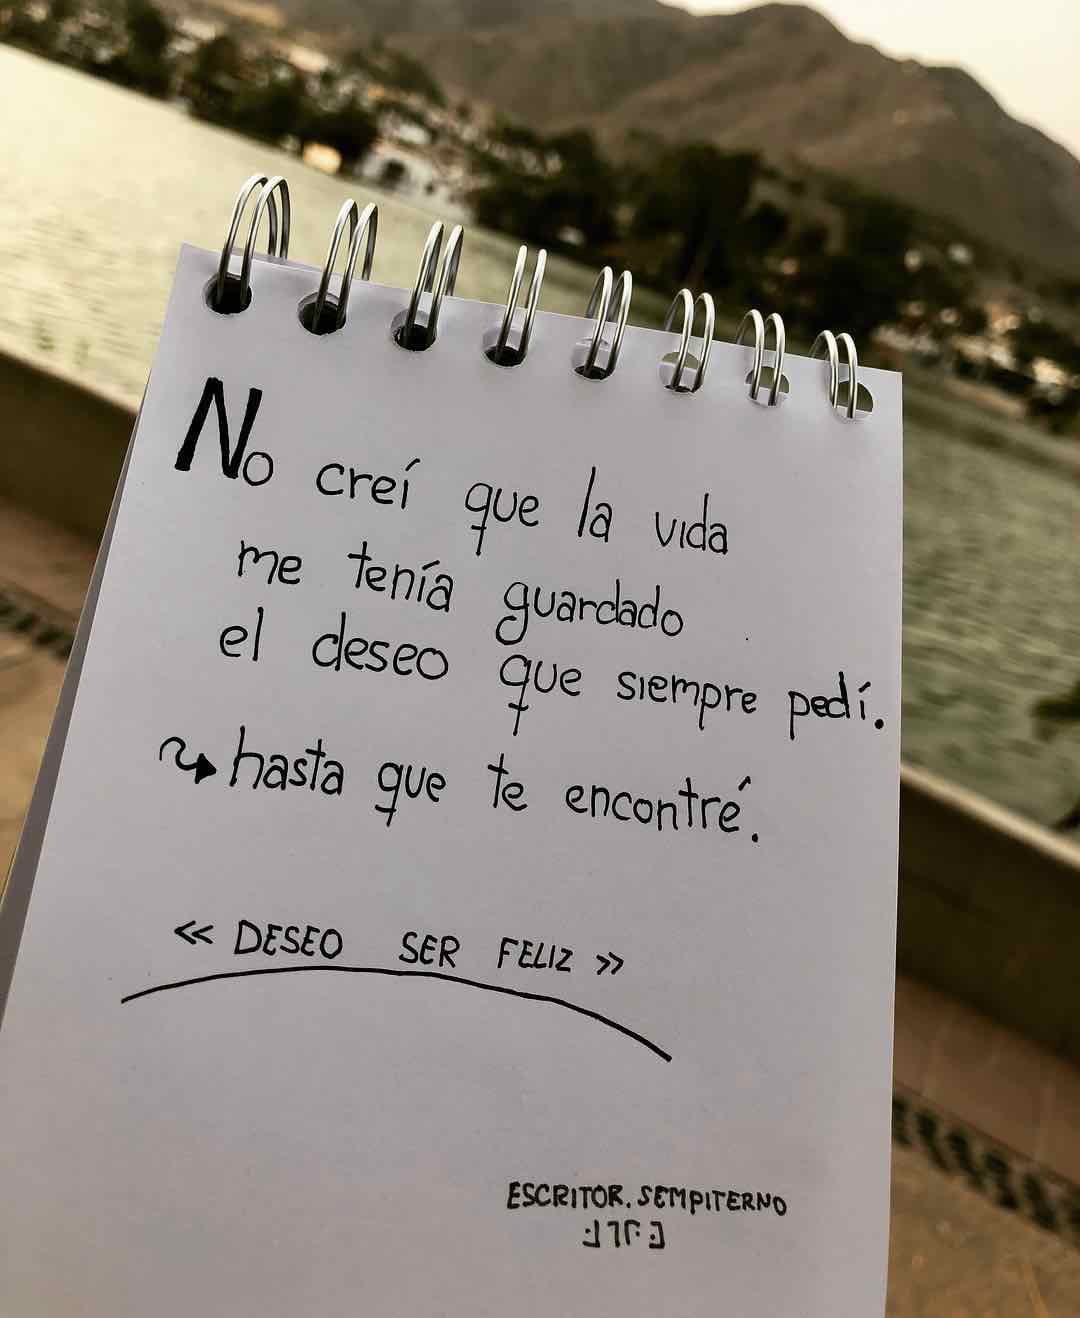 No creí que la vida
me tenía guardado
el deseo que siempre pedí.
hasta que te encontré.
<< DESEO SER FELIZ >>
ESCRITOR.SEMPITERNO